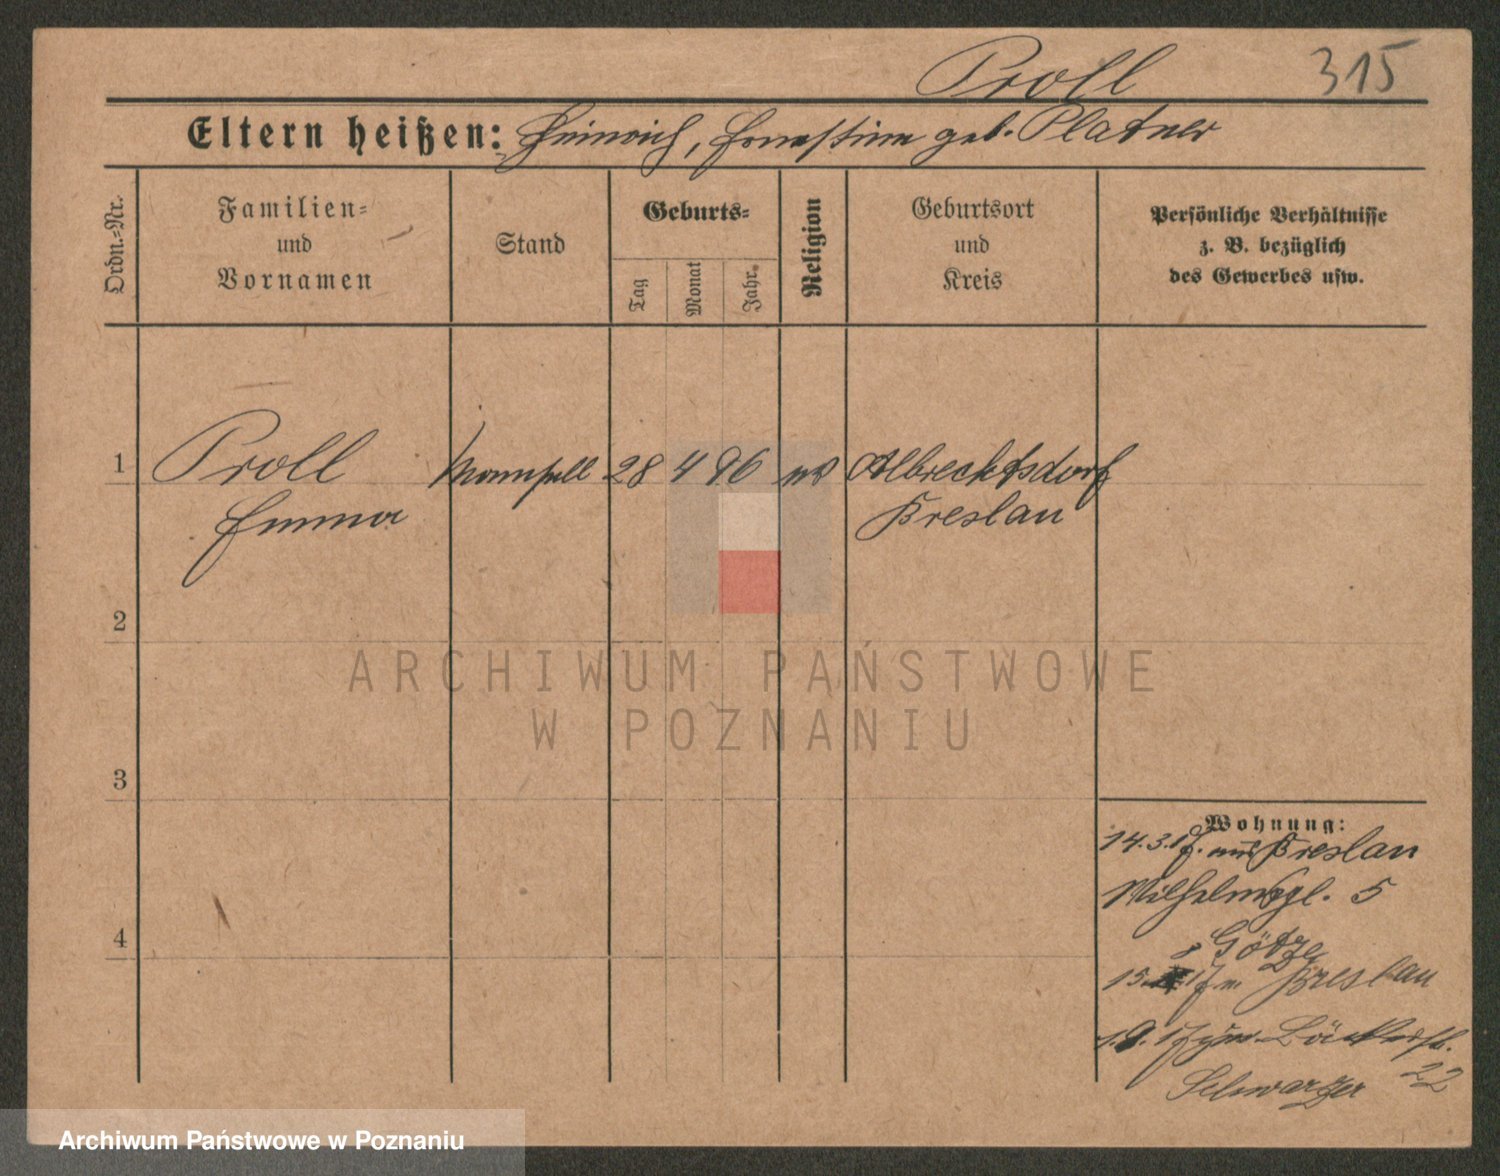 Proll 315
Eltern heißen: Heinrich, Ernestine geb. Platner
Ordn.-Nr.
Familien-
und
Vornamen
Stand
Geburts-
Tag
Monat
Jahr.
Religion
Geburtsort
und
Kreis
Persönliche Verhältnisse
z. B. bezüglich
des Gewerbes usw.
1 Proll Mamsell 28 4 96 Albrechtsdorf
Emma Breslau
2
3
4
Wohnung:
14.3.17. aus Breslau
5
Götze
15. 17 n. Breslau
22
Schwarzer
ARCHIWUM PAŃSTWOWE
W POZNANIU
Archiwum Państwowe w Poznaniu